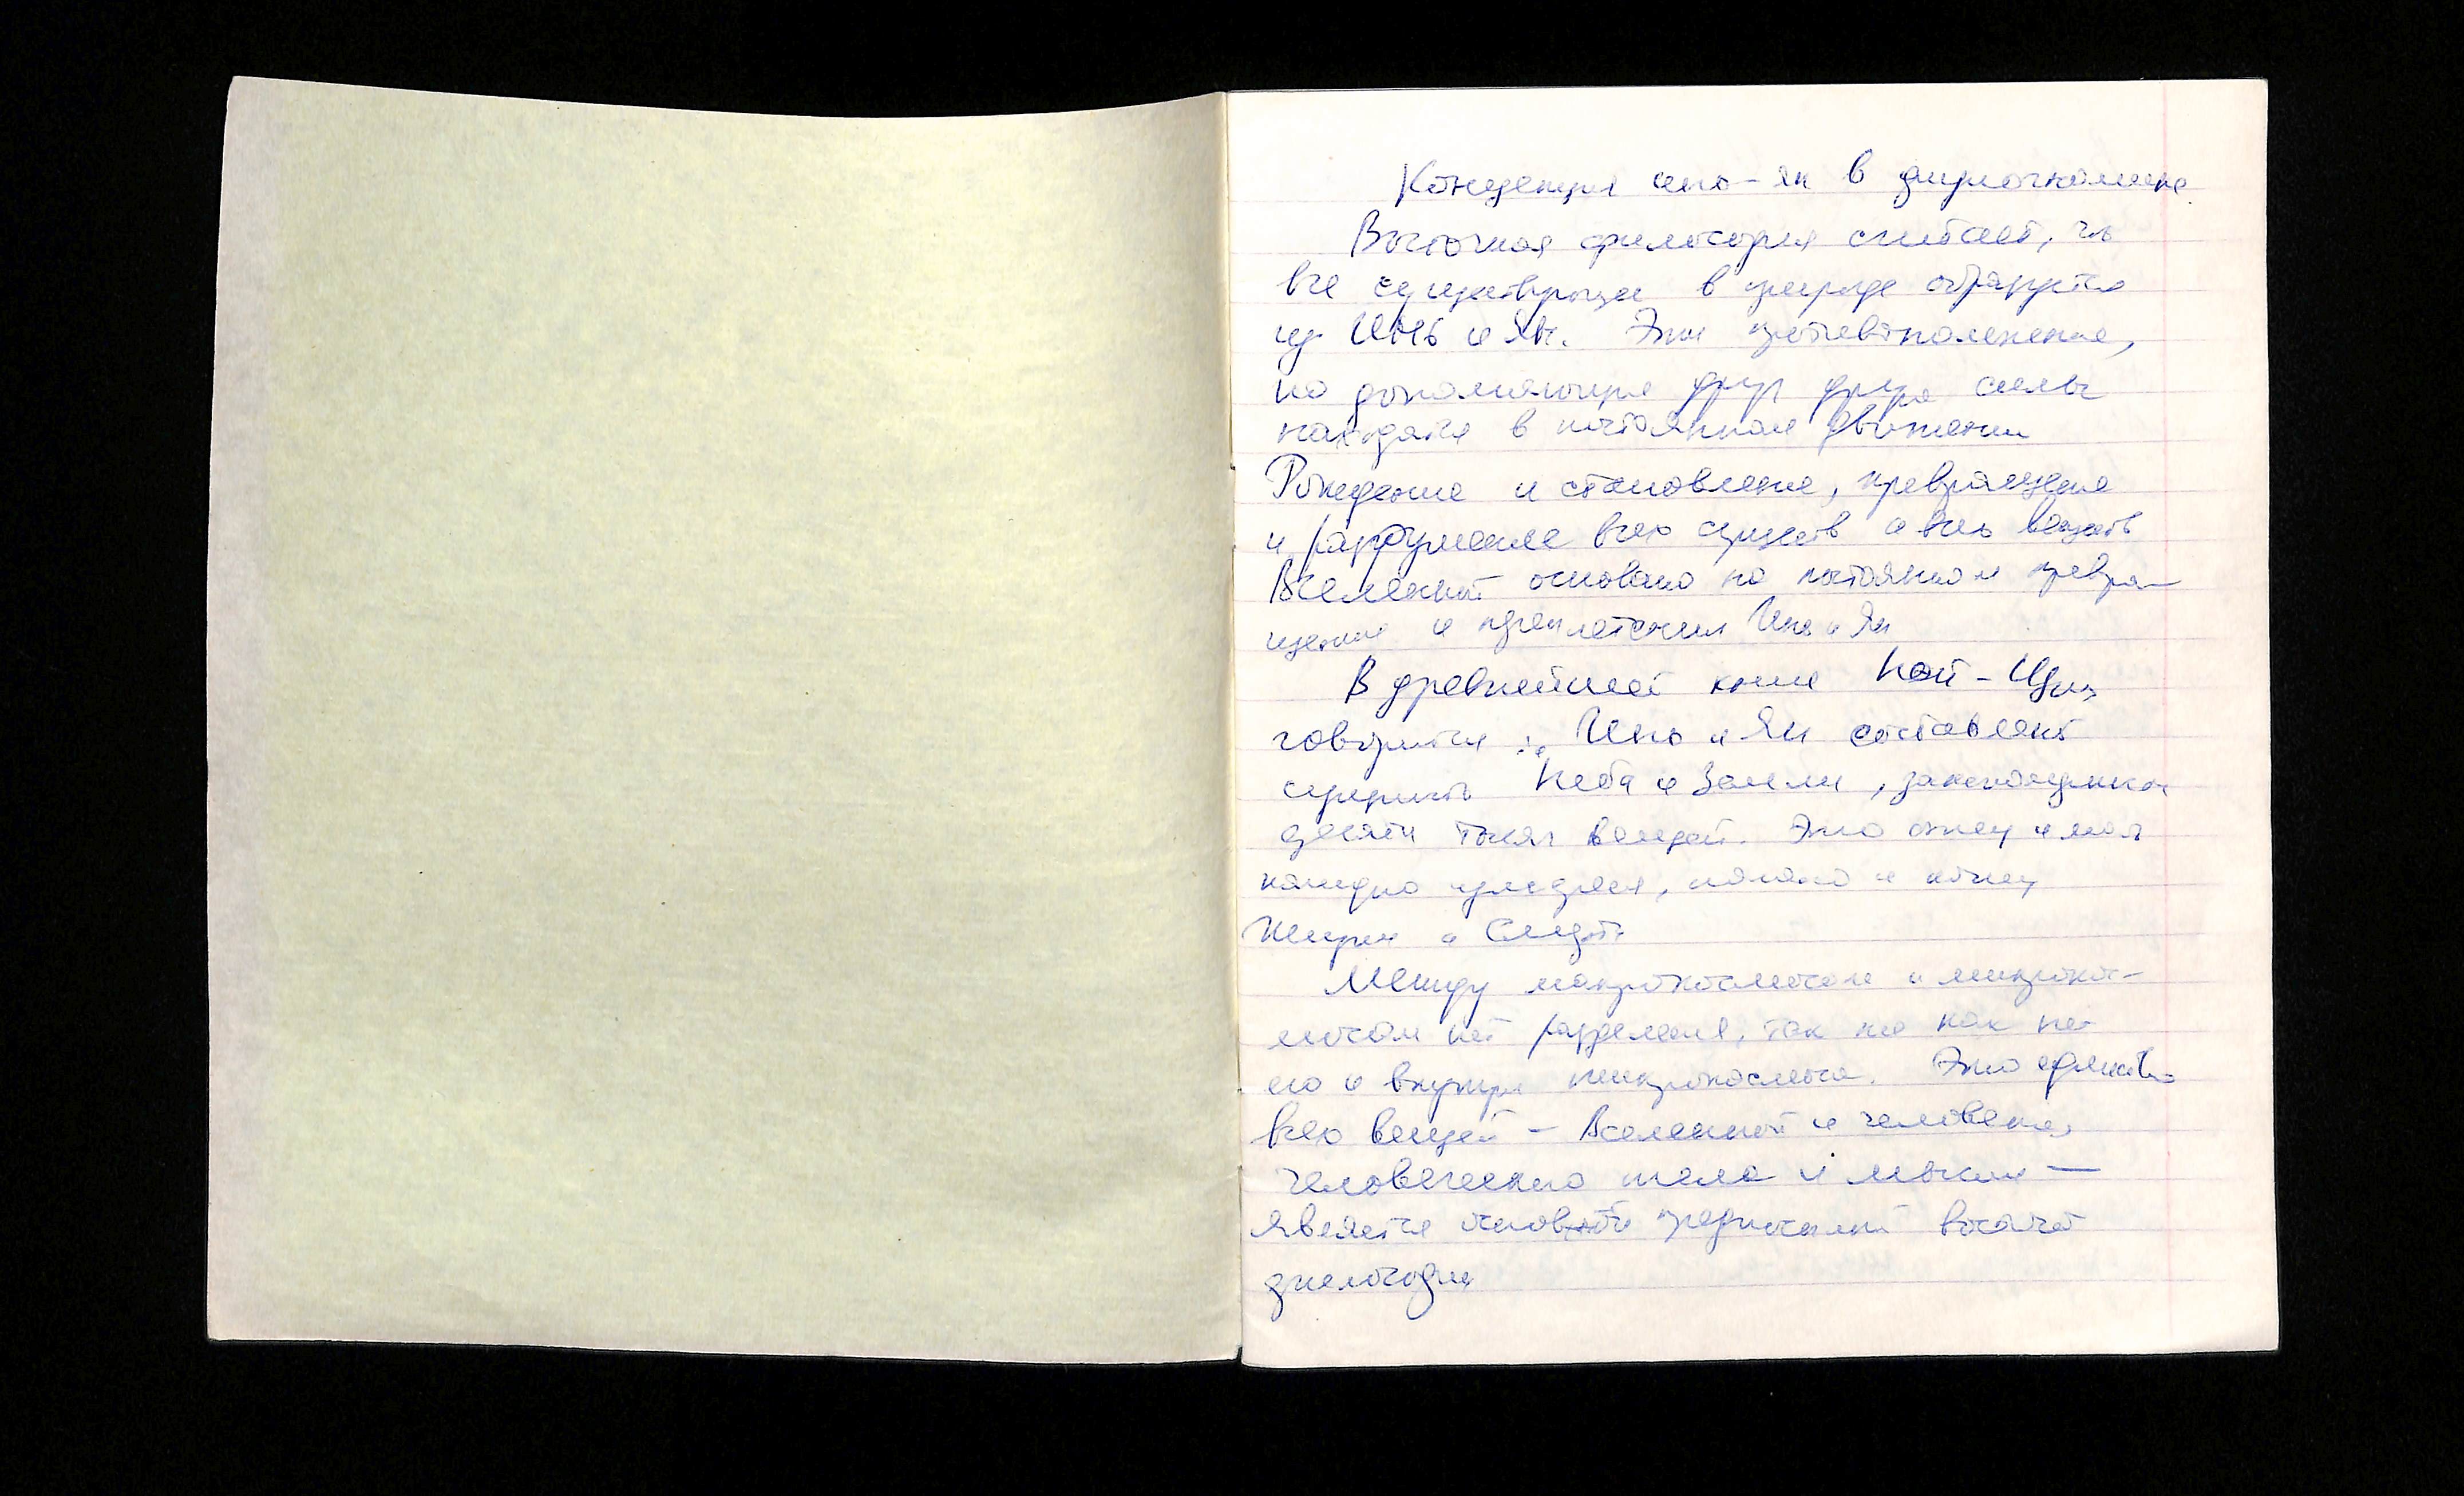 Концепция инь-ян в
Восточная философия считает, что
все существующее в природе образуется
из Инь и Ян. Эти противоположные,
но дополняющие друг друга силы
находятся в постоянном движении
Рождение и становление, превращение
и разрушение всех существ и всех веществ
Вселенной основано на постоянном превра-
щении и переплетении Инь и Ян
В древнейшей книге Ней-Цзин
говорится: "Инь и Ян составляют
Неба и Земли,
десяти тысяч вещей. Это отец и мать
каждого, начало и конец
Жизни и Смерти
Между макрокосмосом и микрокос-
мосом нет разделения, так же как нет
его и внутри микрокосмоса. Это единство
всех вещей – Вселенной и человека,
человеческого тела и мысли —
является основной предпосылкой восточной
философии